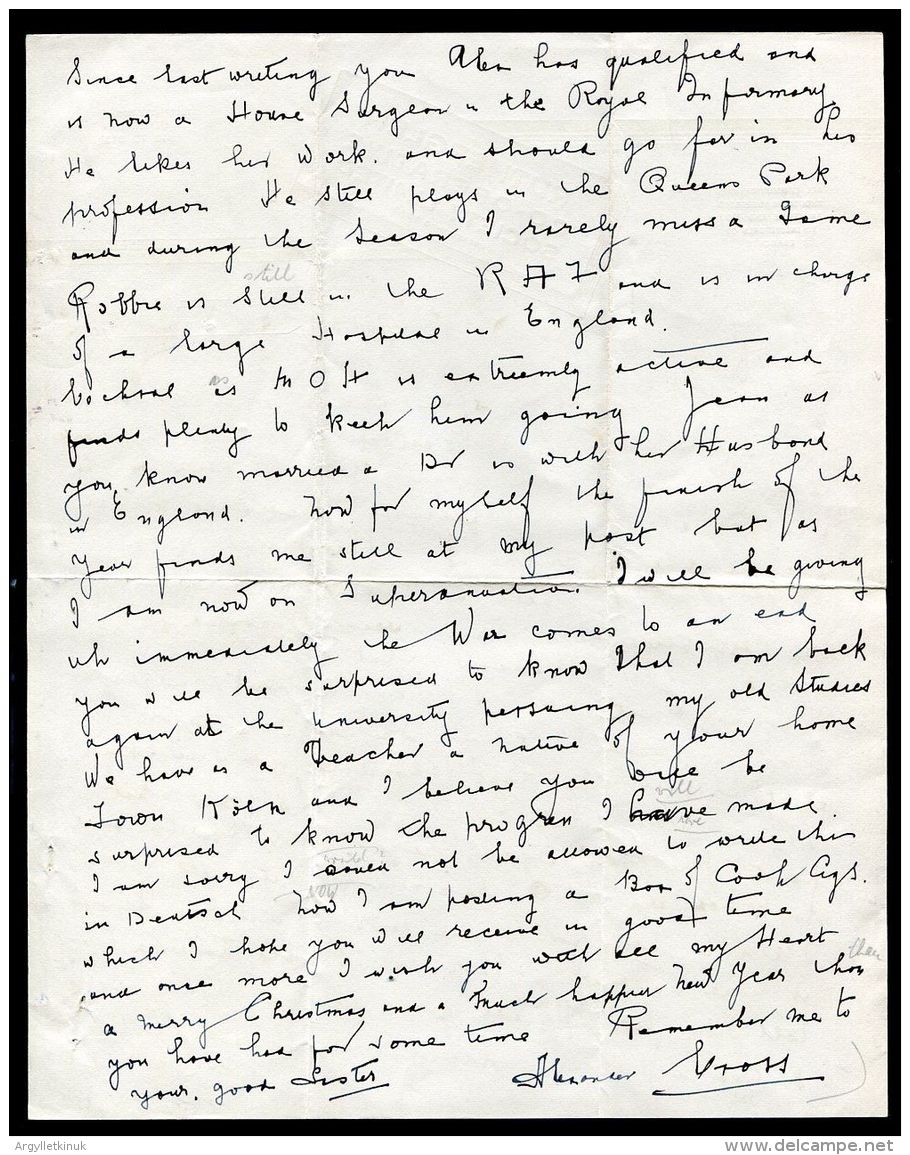 Since last writing you Alex has qualified and
is now a House Surgeon in the Royal Infirmary
He likes his work. and should go far in his
profession He still plays in the Queens Park
and during the Season I rarely miss a Game
still
Robbie is still in the RAF and is in charge
of a large Hospital in England.
as
as M O H is extremly active and
finds plenty to keep him going Jean as
you know married a Dr is with her Husband
in England. Now for myself the finish of the
Year finds me still at my post but as
I am now on Superanuation I will be giving
up immediately the War comes to an end
you will be surprised to know that I am back
again at the University persuing my old Studies
We have as a Teacher a native of your home
Town Köln and I believe you will be
will
surprised to know the progress I have made
I am sorry I would not be allowed to write this
in Deutsch Now I am posting a Box of Cook Cigs.
which I hope you will receive in good time
and once more I wish you with all my Heart
than
a merry Christmas and a much happier New Year than
you have had for some time Remember me to
your good Sister Alexander Cross
Argylletkinuk
www.delcampe.net